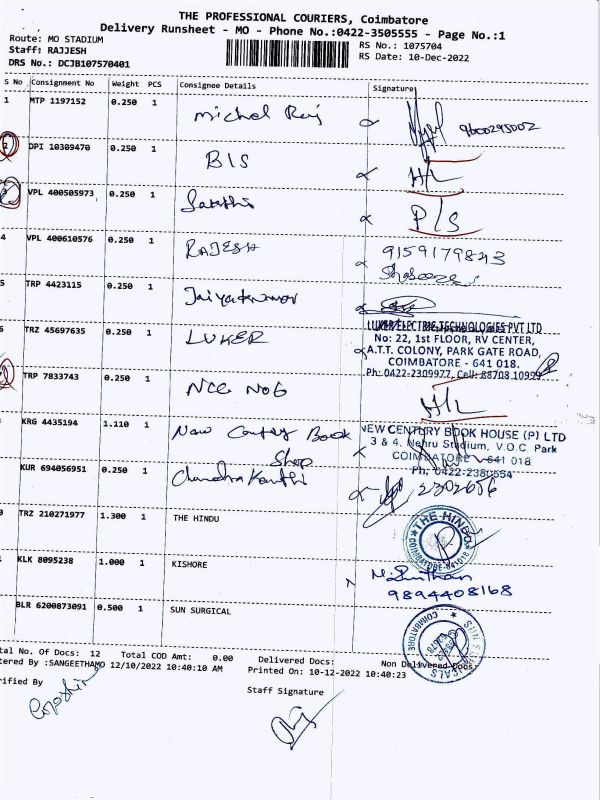 THE PROFESSIONAL COURIERS, Coimbatore
Delivery Runsheet - MO - Phone No.:0422-3505555 - Page No.:1
Route: MO STADIUM
RS No.: 1075704
Staff: RAJJESH
RS Date: 10-Dec-2022
DRS No.: DCJB107570401
S No Consignment No Weight PCS Consignee Details Signature
1 MTP 1197152 0.250 1 Michel Raj 9600295002
2 DPI 10309470 0.250 1 BIS H/L
3 VPL 400505973 0.250 1 Sakthi P/S
4 VPL 400610576 0.250 1 RAJESH 9159179843
5 TRP 4423115 0.250 1 Jaiyakumar
6 TRZ 45697635 0.250 1 LUKER LUKER ELECTRIC TECHNOLOGIES PVT LTD
No: 22, 1st FLOOR, RV CENTER,
A.T.T. COLONY, PARK GATE ROAD,
COIMBATORE - 641 018.
Ph: 0422-2309977, Cell: 88708 10999
TRP 7833743 0.250 1 NCC NO6 H/L
KRG 4435194 1.110 1 New Century Book Shop NEW CENTURY BOOK HOUSE (P) LTD
3 & 4, Nehru Stadium, V.O.C. Park
COIMBATORE - 641 018
Ph: 0422-2380554
KUR 694056951 0.250 1 Chandra Kanthi 2302656
TRZ 210271977 1.300 1 THE HINDU THE HINDU
COIMBATORE-641018
KLK 8095238 1.000 1 KISHORE
9894408168
BLR 6200873091 0.500 1 SUN SURGICAL COIMBATORE
tal No. Of Docs: 12 Total COD Amt: 0.00 Delivered Docs: Non Delivered Docs:
tered By :SANGEETHAMO 12/10/2022 10:40:10 AM Printed On: 10-12-2022 10:40:23
rified By
Staff Signature